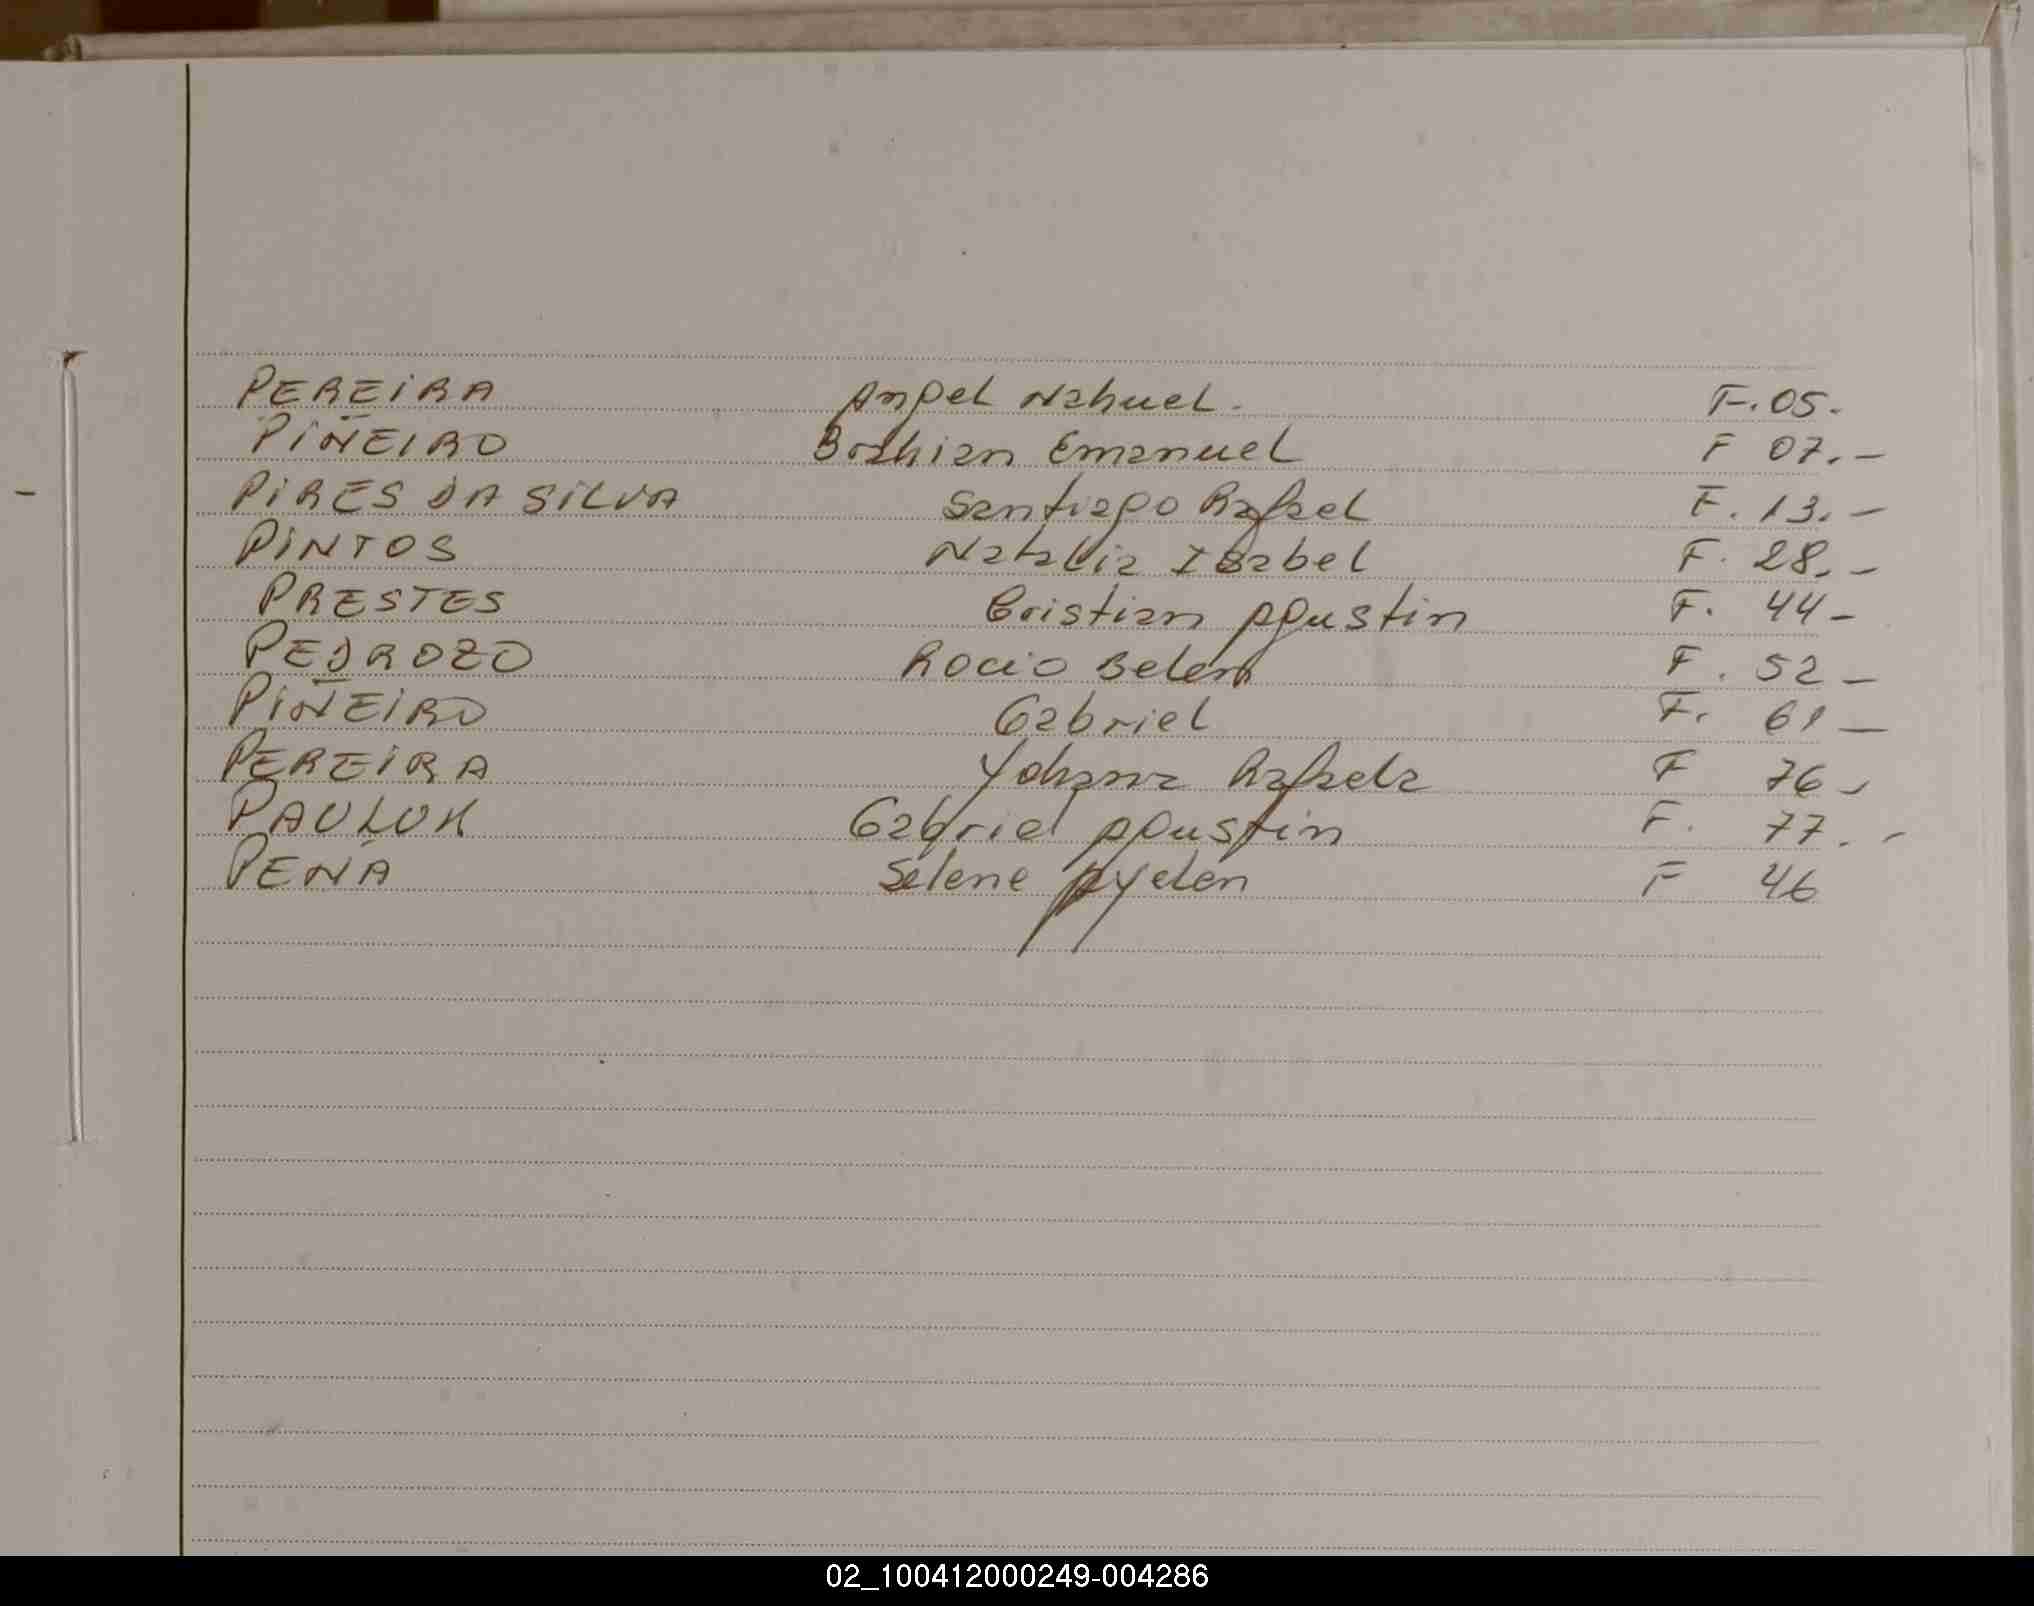 PEREIRA Angel Nahuel. F.05.
PIÑEIRO Brahian Emanuel F 07.-
PIRES DA SILVA Santiago Rafael F. 13.-
PINTOS Natalia Isabel F. 28.-
PRESTES Cristian Agustin F. 44-
PEDROZO Rocio Belen F. 52-
PIÑEIRO Gabriel F. 61-
PEREIRA Yohana Rafaela F 76-
PAULUK Gabriel Agustin F. 77.-
PENA Selene Ayelen F 46
02_100412000249-004286